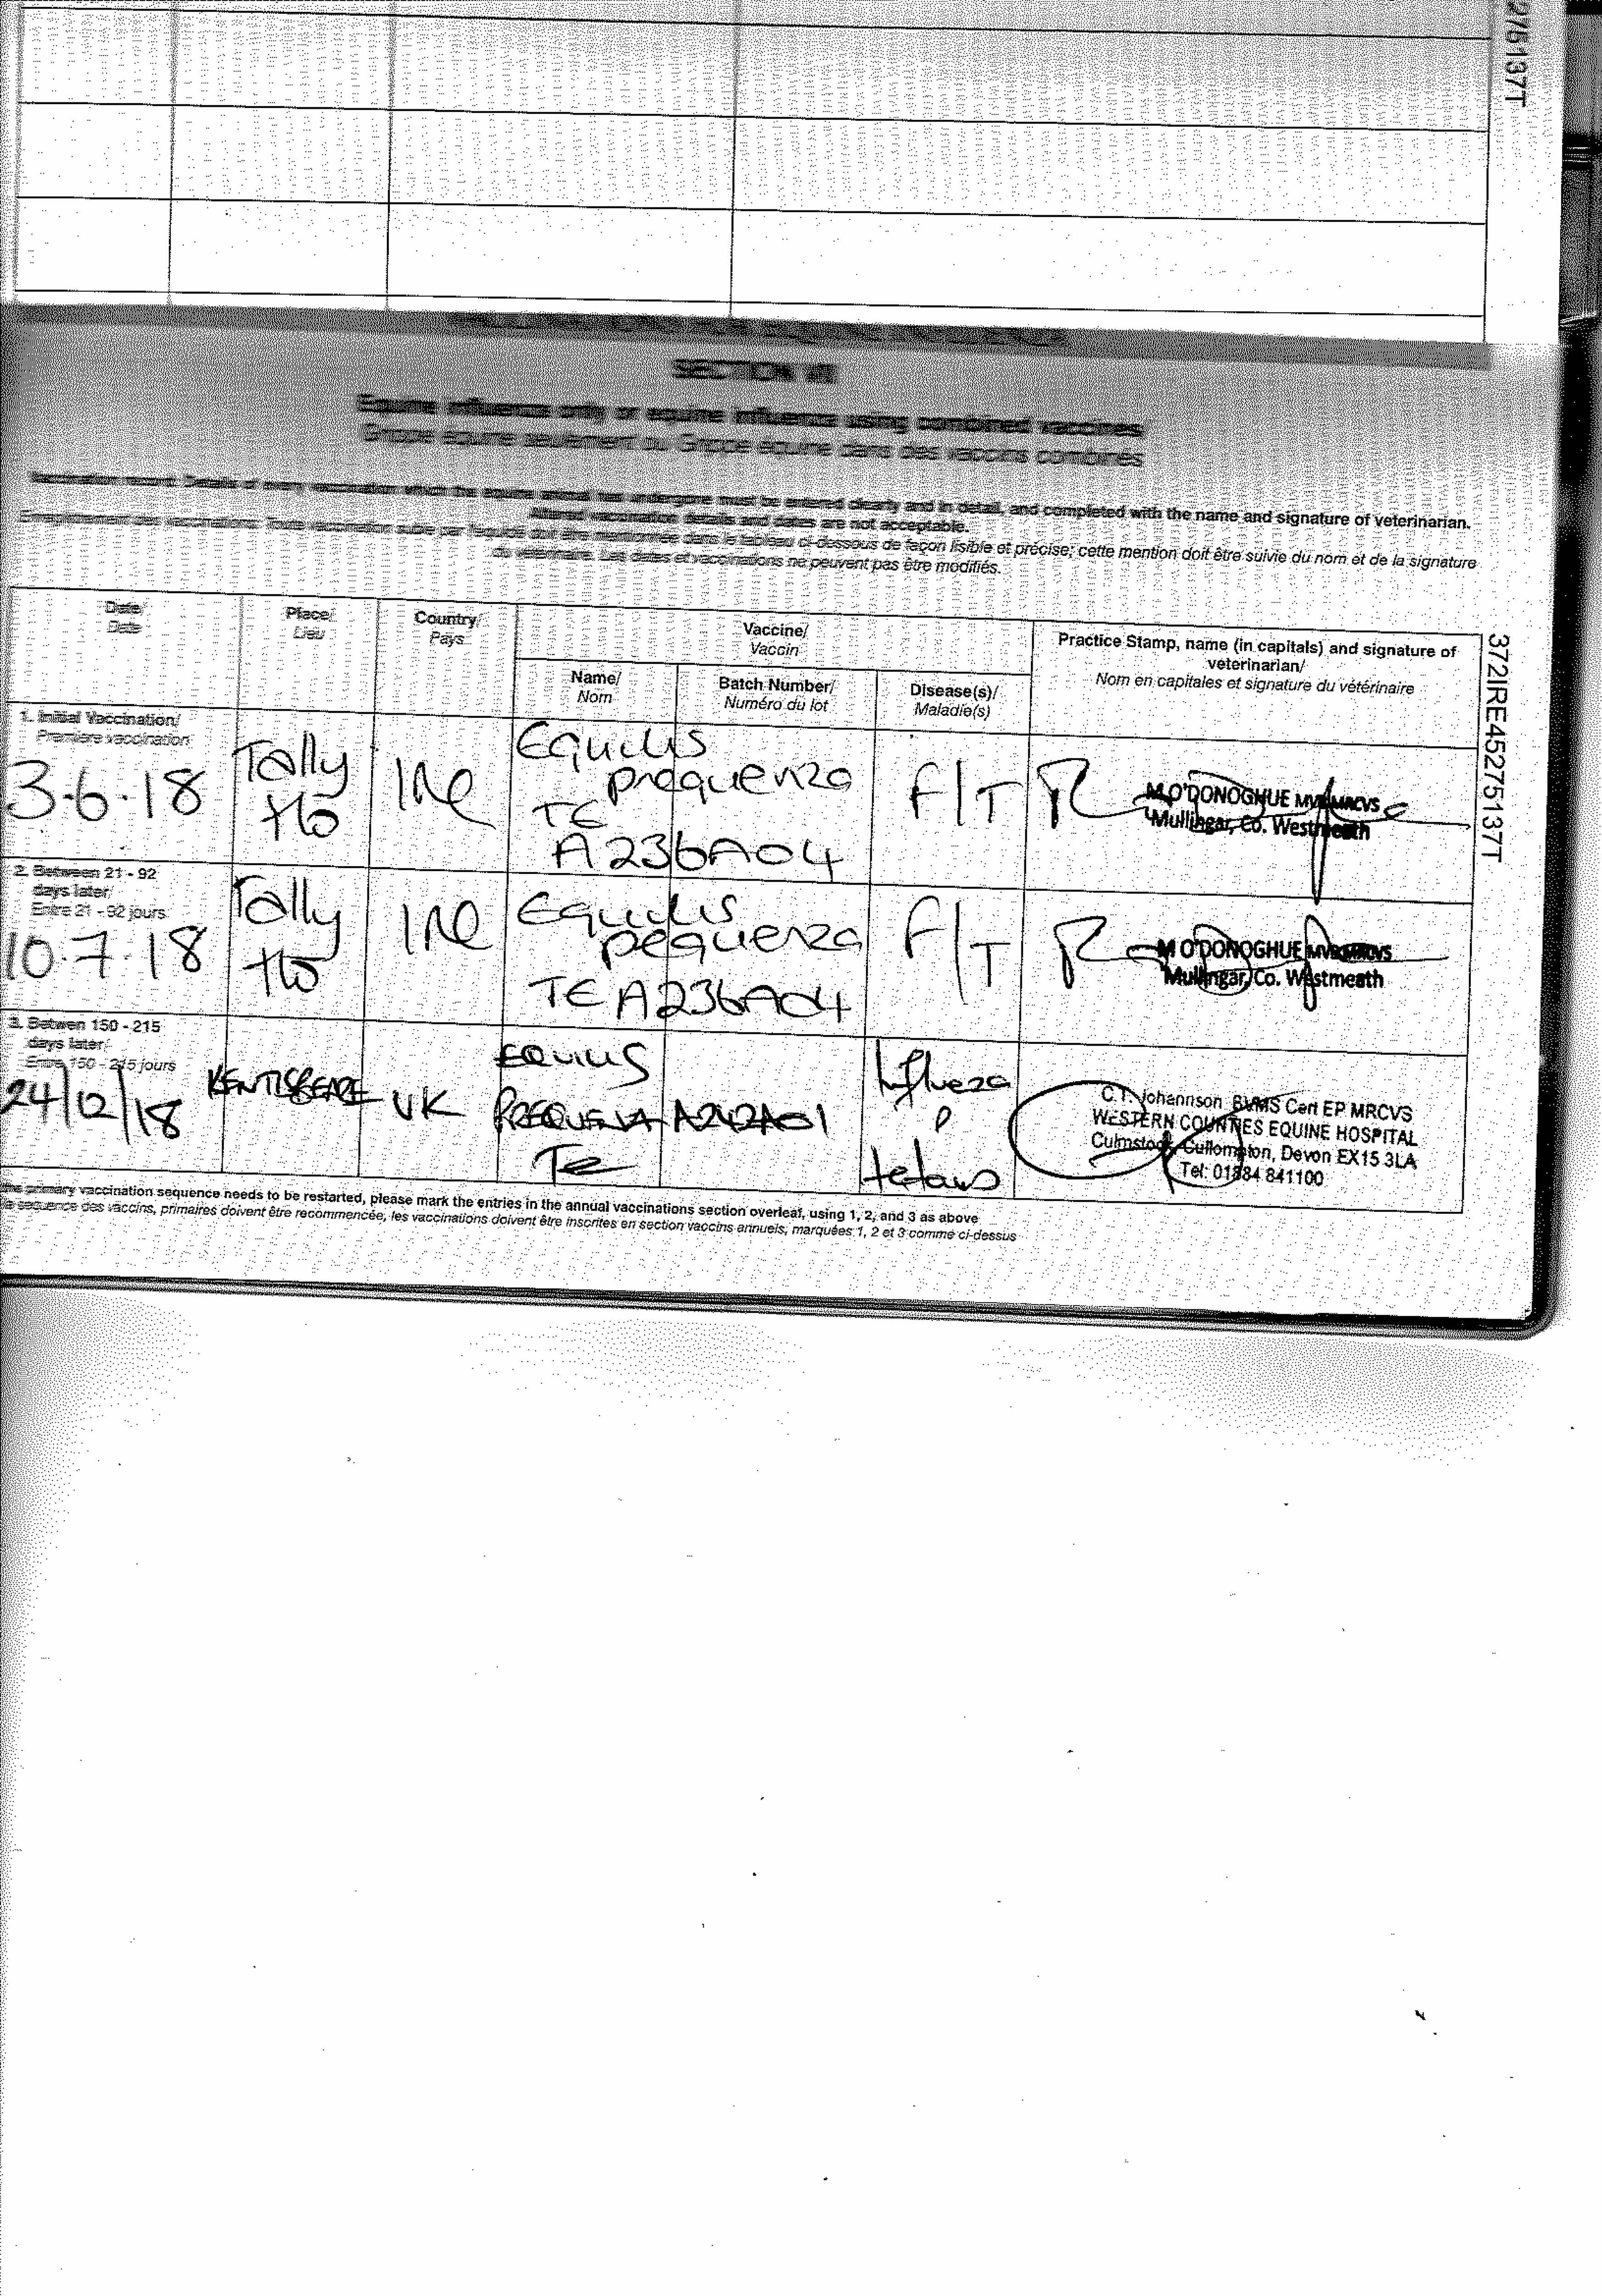 276137T
SECTION VII
Equine influenza only or equine influenza using combined vaccines
Grippe équine seulement ou Grippe équine dans des vaccins combinés
Vaccination record. Details of every vaccination which the equine animal has undergone must be entered clearly and in detail, and completed with the name and signature of veterinarian.
Altered vaccination details and dates are not acceptable.
Enregistrement des vaccinations. Toute vaccination subie par l'équidé doit être mentionnée dans le tableau ci-dessous de façon lisible et précise; cette mention doit être suivie du nom et de la signature
du vétérinaire. Les dates et vaccinations ne peuvent pas être modifiés.
372IRE45275137T
Date/
Date
Place/
Lieu
Country/
Pays
Vaccine/
Vaccin
Practice Stamp, name (in capitals) and signature of
veterinarian/
Nom en capitales et signature du vétérinaire
Name/
Nom
Batch Number/
Numéro du lot
Disease(s)/
Maladie(s)
1. Initial Vaccination/
Première vaccination
3.6.18
Tally
Ho
IRe
Equilis
prequenza
TE
A236A04
F/T
M O'DONOGHUE MVB MRCVS
Mullingar, Co. Westmeath
2. Between 21 - 92
days later/
Entre 21 - 92 jours
10.7.18
Tally
Ho
IRe
Equilis
pequenza
TE A236A04
F/T
M O'DONOGHUE MVB MRCVS
Mullingar, Co. Westmeath
3. Betwen 150 - 215
days later/
Entre 150 - 215 jours
24/12/18
KENTISBEARE
UK
EQUILIS
PREQUENZA
Te
A242A01
Influeza
tetanus
C.T. Johannson BVMS Cert EP MRCVS
WESTERN COUNTIES EQUINE HOSPITAL
Culmstock, Cullompton, Devon EX15 3LA
Tel: 01884 841100
primary vaccination sequence needs to be restarted, please mark the entries in the annual vaccinations section overleaf, using 1, 2, and 3 as above
séquence des vaccins, primaires doivent être recommencée, les vaccinations doivent être inscrites en section vaccins annuels, marquées 1, 2 et 3 comme ci-dessus